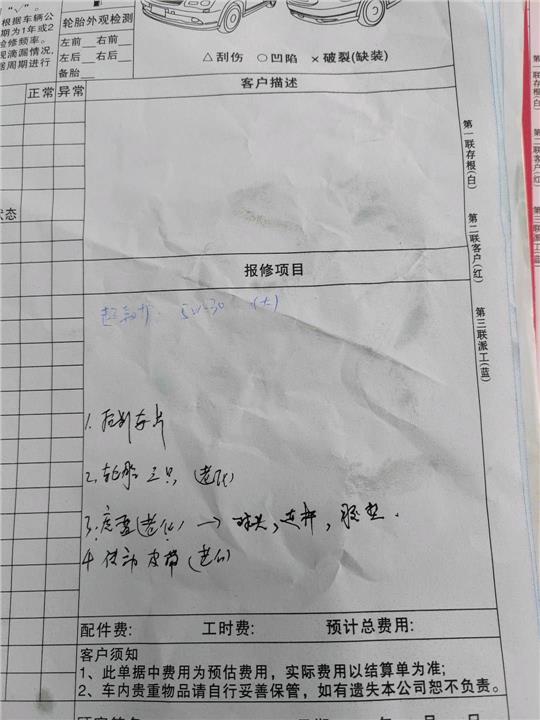 "√"。
根据车辆公
期为1年或2
检修频率。
现滴漏情况,
据周期进行
轮胎外观检测
左前 右前
左后 右后
备胎
△刮伤 ○凹陷 ×破裂(缺装)
正常 异常
客户描述
状态
第一联存根(白)
第二联客户(红)
第三联派工(蓝)
报修项目
5W-30 (大)
1. 后刹车片
2. 轮胎三只(老化)
3. (老化) → 球头,连杆,胶垫.
4. 传动皮带(老化)
配件费: 工时费: 预计总费用:
客户须知
1、此单据中费用为预估费用,实际费用以结算单为准;
2、车内贵重物品请自行妥善保管,如有遗失本公司恕不负责。